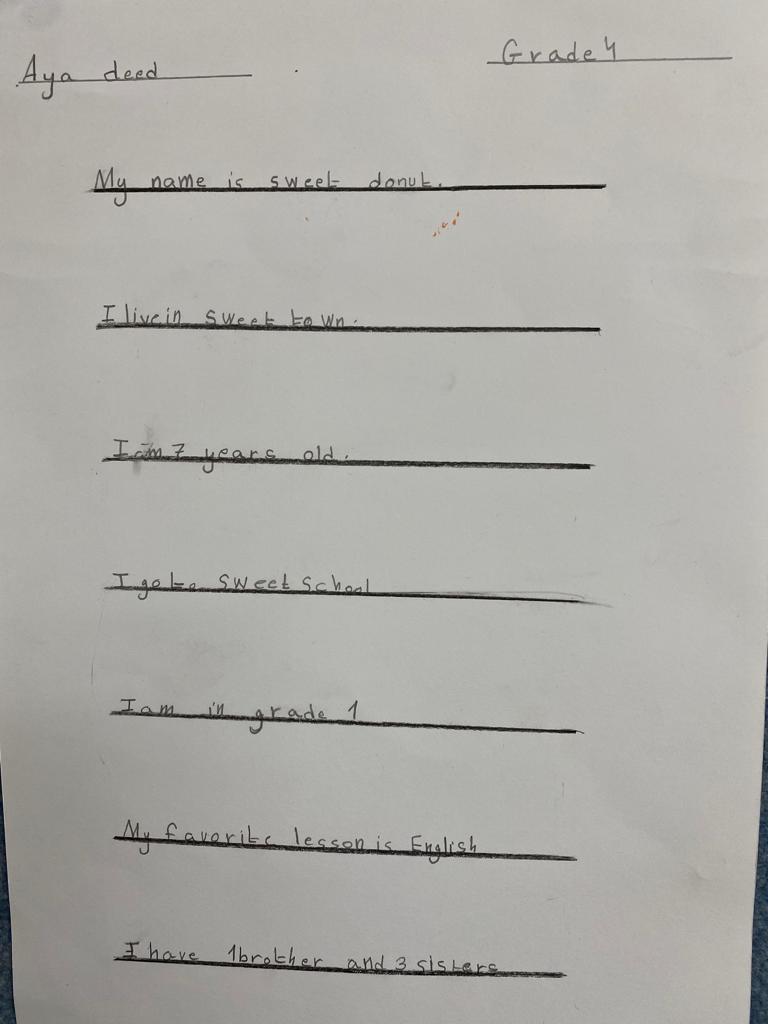 Aya deed
Grade 4
My name is sweet donut.
I live in sweet town.
I am 7 years old.
I go to sweet school
I am in grade 1
My favorite lesson is English
I have 1 brother and 3 sisters